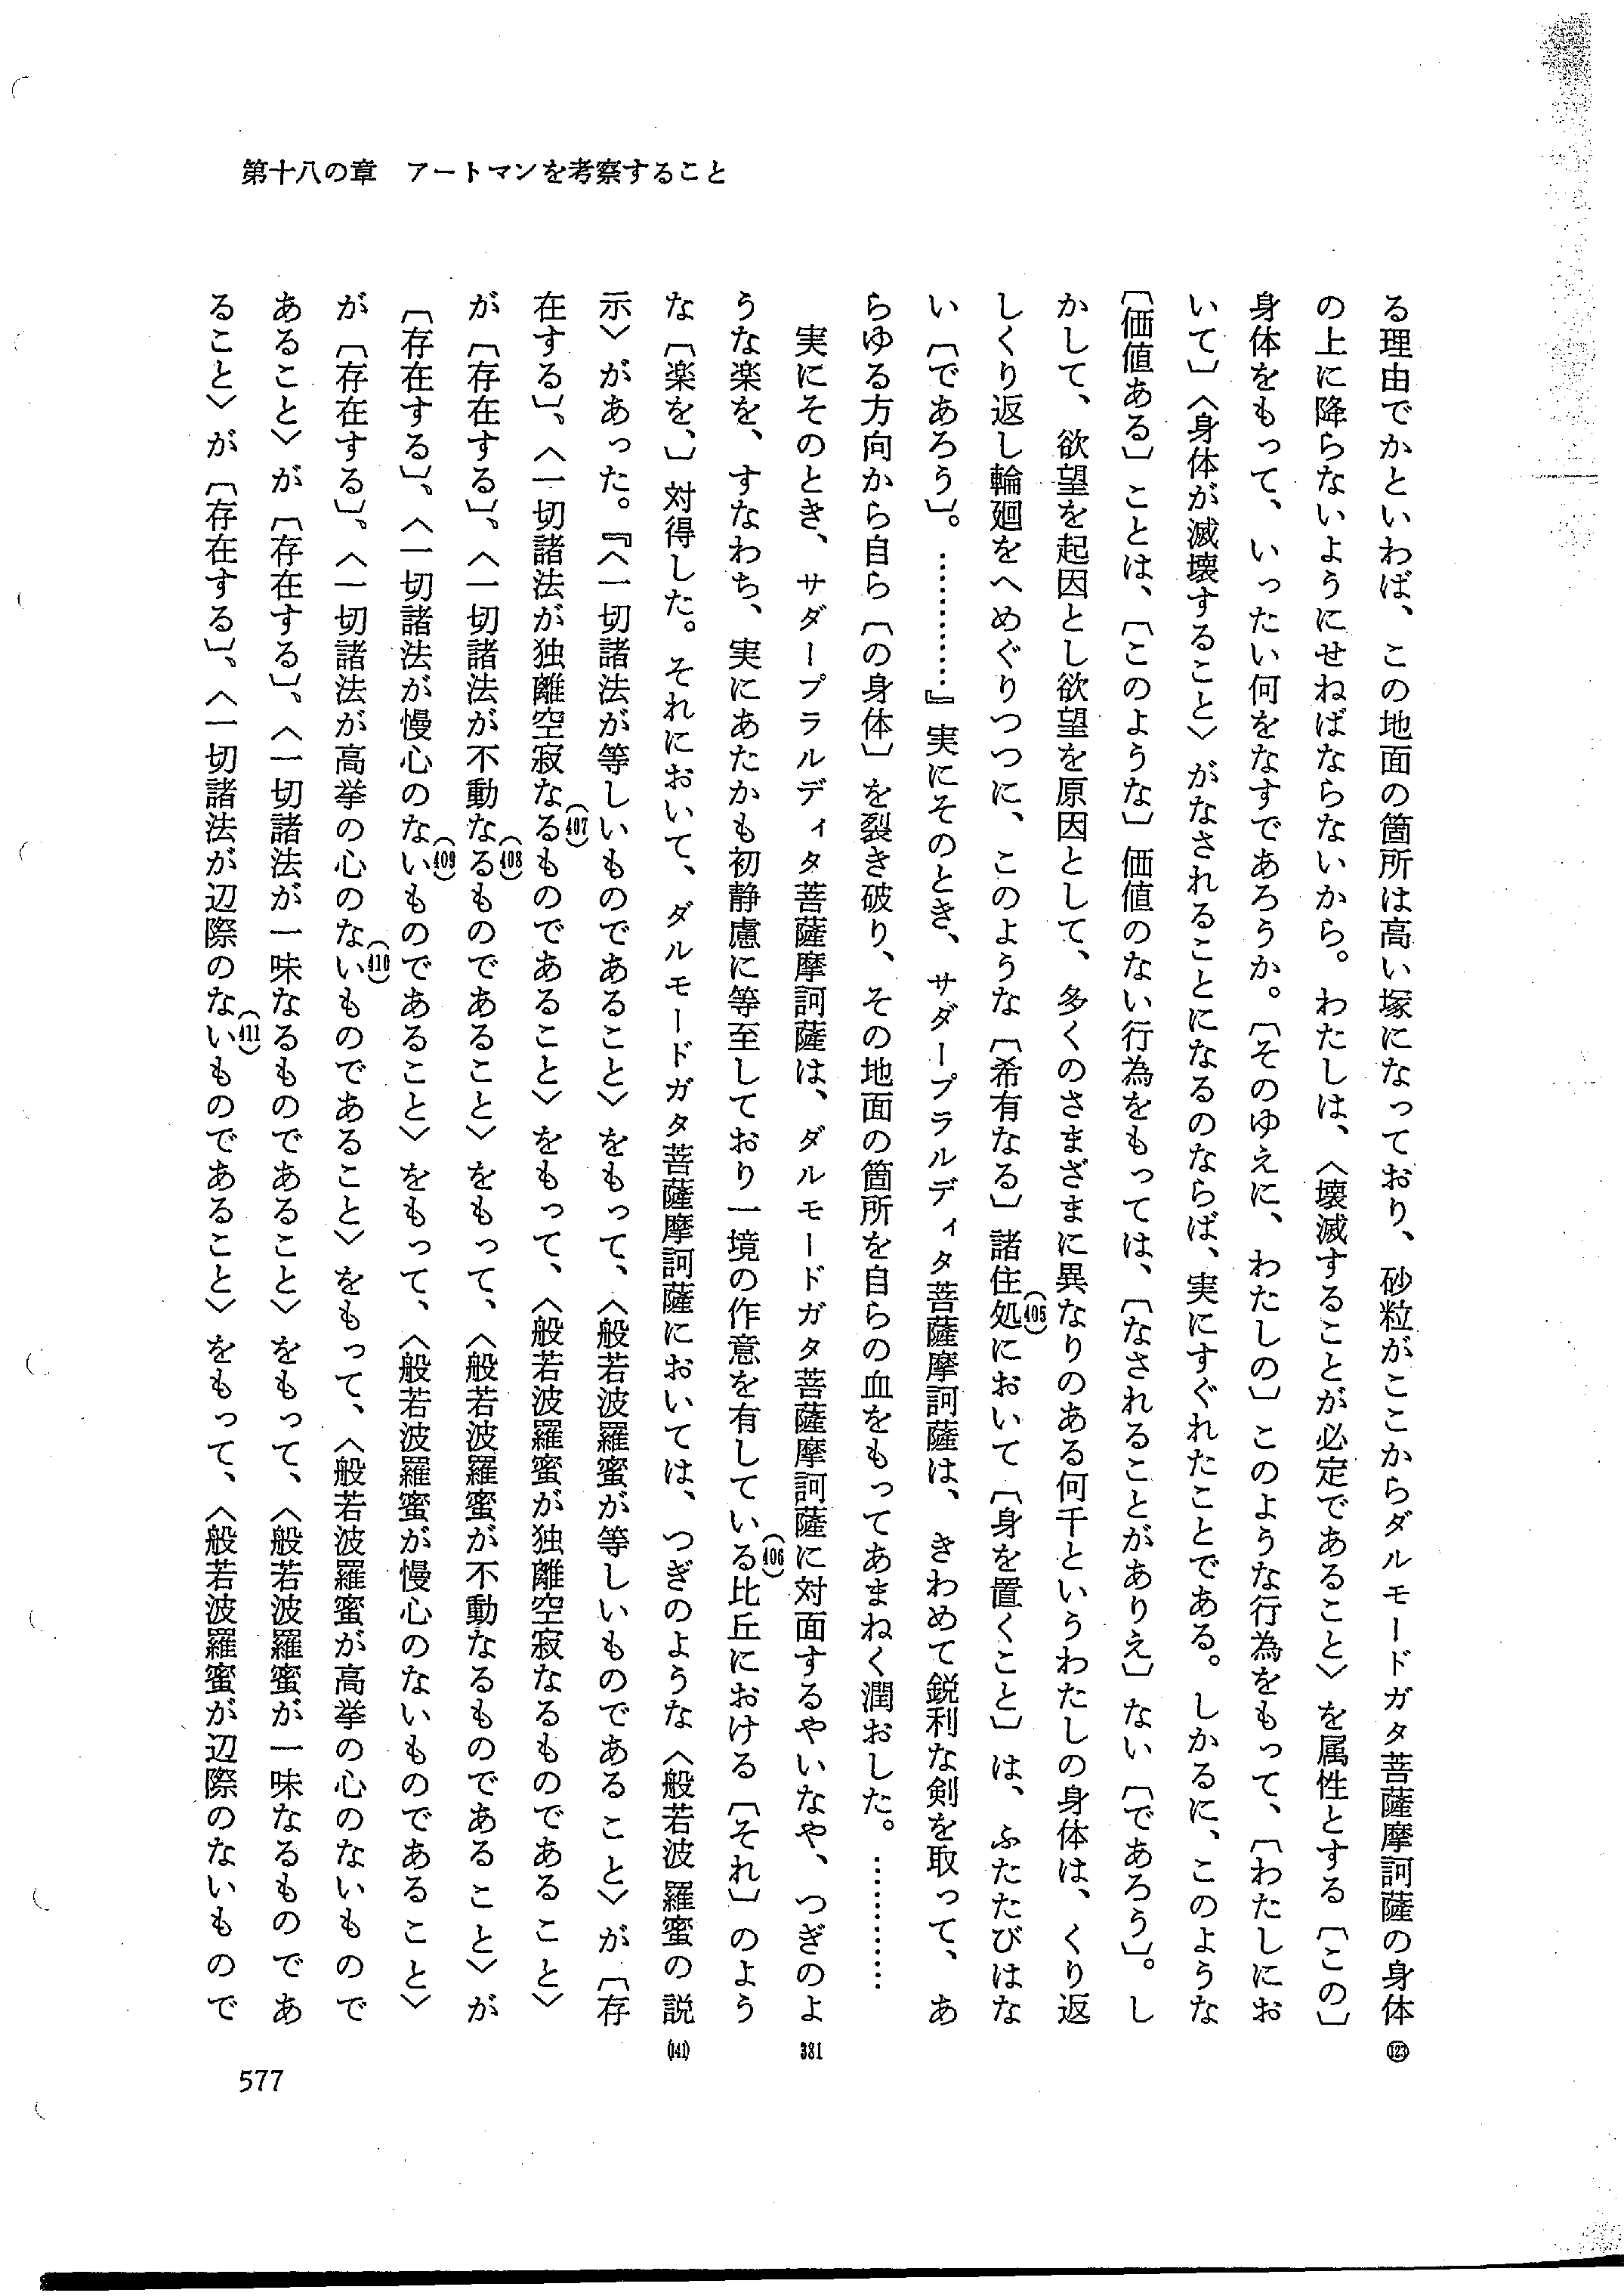 第十八の章　アートマンを考察すること
る理由でかといわば、この地面の箇所は高い塚になっており、砂粒がここからダルモードガタ菩薩摩訶薩の身体
(123)
の上に降らないようにせねばならないから。わたしは、〈壊滅することが必定であること〉を属性とする〔この〕
身体をもって、いったい何をなすであろうか。〔そのゆえに、わたしの〕このような行為をもって、〔わたしにお
いて〕〈身体が滅壊すること〉がなされることになるのならば、実にすぐれたことである。しかるに、このような
〔価値ある〕ことは、〔このような〕価値のない行為をもっては、〔なされることがありえ〕ない〔であろう〕。し
かして、欲望を起因とし欲望を原因として、多くのさまざまに異なりのある何千というわたしの身体は、くり返
しくり返し輪廻をへめぐりつつに、このような〔希有なる〕諸住処(405)において〔身を置くこと〕は、ふたたびはな
い〔であろう〕。…………』実にそのとき、サダープラルディタ菩薩摩訶薩は、きわめて鋭利な剣を取って、あ
らゆる方向から自ら〔の身体〕を裂き破り、その地面の箇所を自らの血をもってあまねく潤おした。…………
実にそのとき、サダープラルディタ菩薩摩訶薩は、ダルモードガタ菩薩摩訶薩に対面するやいなや、つぎのよ
381
うな楽を、すなわち、実にあたかも初静慮に等至しており一境の作意を有している(406)比丘における〔それ〕のよう
な〔楽を、〕対得した。それにおいて、ダルモードガタ菩薩摩訶薩においては、つぎのような〈般若波羅蜜の説
(141)
示〉があった。『〈一切諸法が等しいものであること〉をもって、〈般若波羅蜜が等しいものであること〉が〔存
在する〕。〈一切諸法が独離空寂なる(407)ものであること〉をもって、〈般若波羅蜜が独離空寂なるものであること〉
が〔存在する〕。〈一切諸法が不動なる(408)ものであること〉をもって、〈般若波羅蜜が不動なるものであること〉が
〔存在する〕。〈一切諸法が慢心のない(409)ものであること〉をもって、〈般若波羅蜜が慢心のないものであること〉
が〔存在する〕。〈一切諸法が高挙の心のない(410)ものであること〉をもって、〈般若波羅蜜が高挙の心のないもので
あること〉が〔存在する〕。〈一切諸法が一味なるものであること〉をもって、〈般若波羅蜜が一味なるものであ
ること〉が〔存在する〕。〈一切諸法が辺際のない(411)ものであること〉をもって、〈般若波羅蜜が辺際のないもので
577